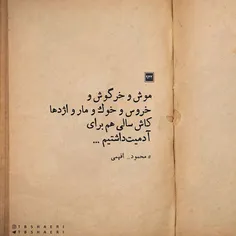 موش و خرگوش و
خروس و خوک و مار و اژدها
کاش سالی هم برای
آدمیت داشتیم ...
# محمود_افهمی